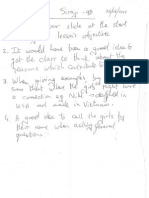 your slide at the start
lesson objective
2. It would have been a good idea to
get the class to think about the
reasons which contribute
3. When giving examples try
sure that where the girls might
a connection eg. Nike → designed in
USA and made in Vietnam.
4. A good idea to call the girls by
their name when asking general
questions.